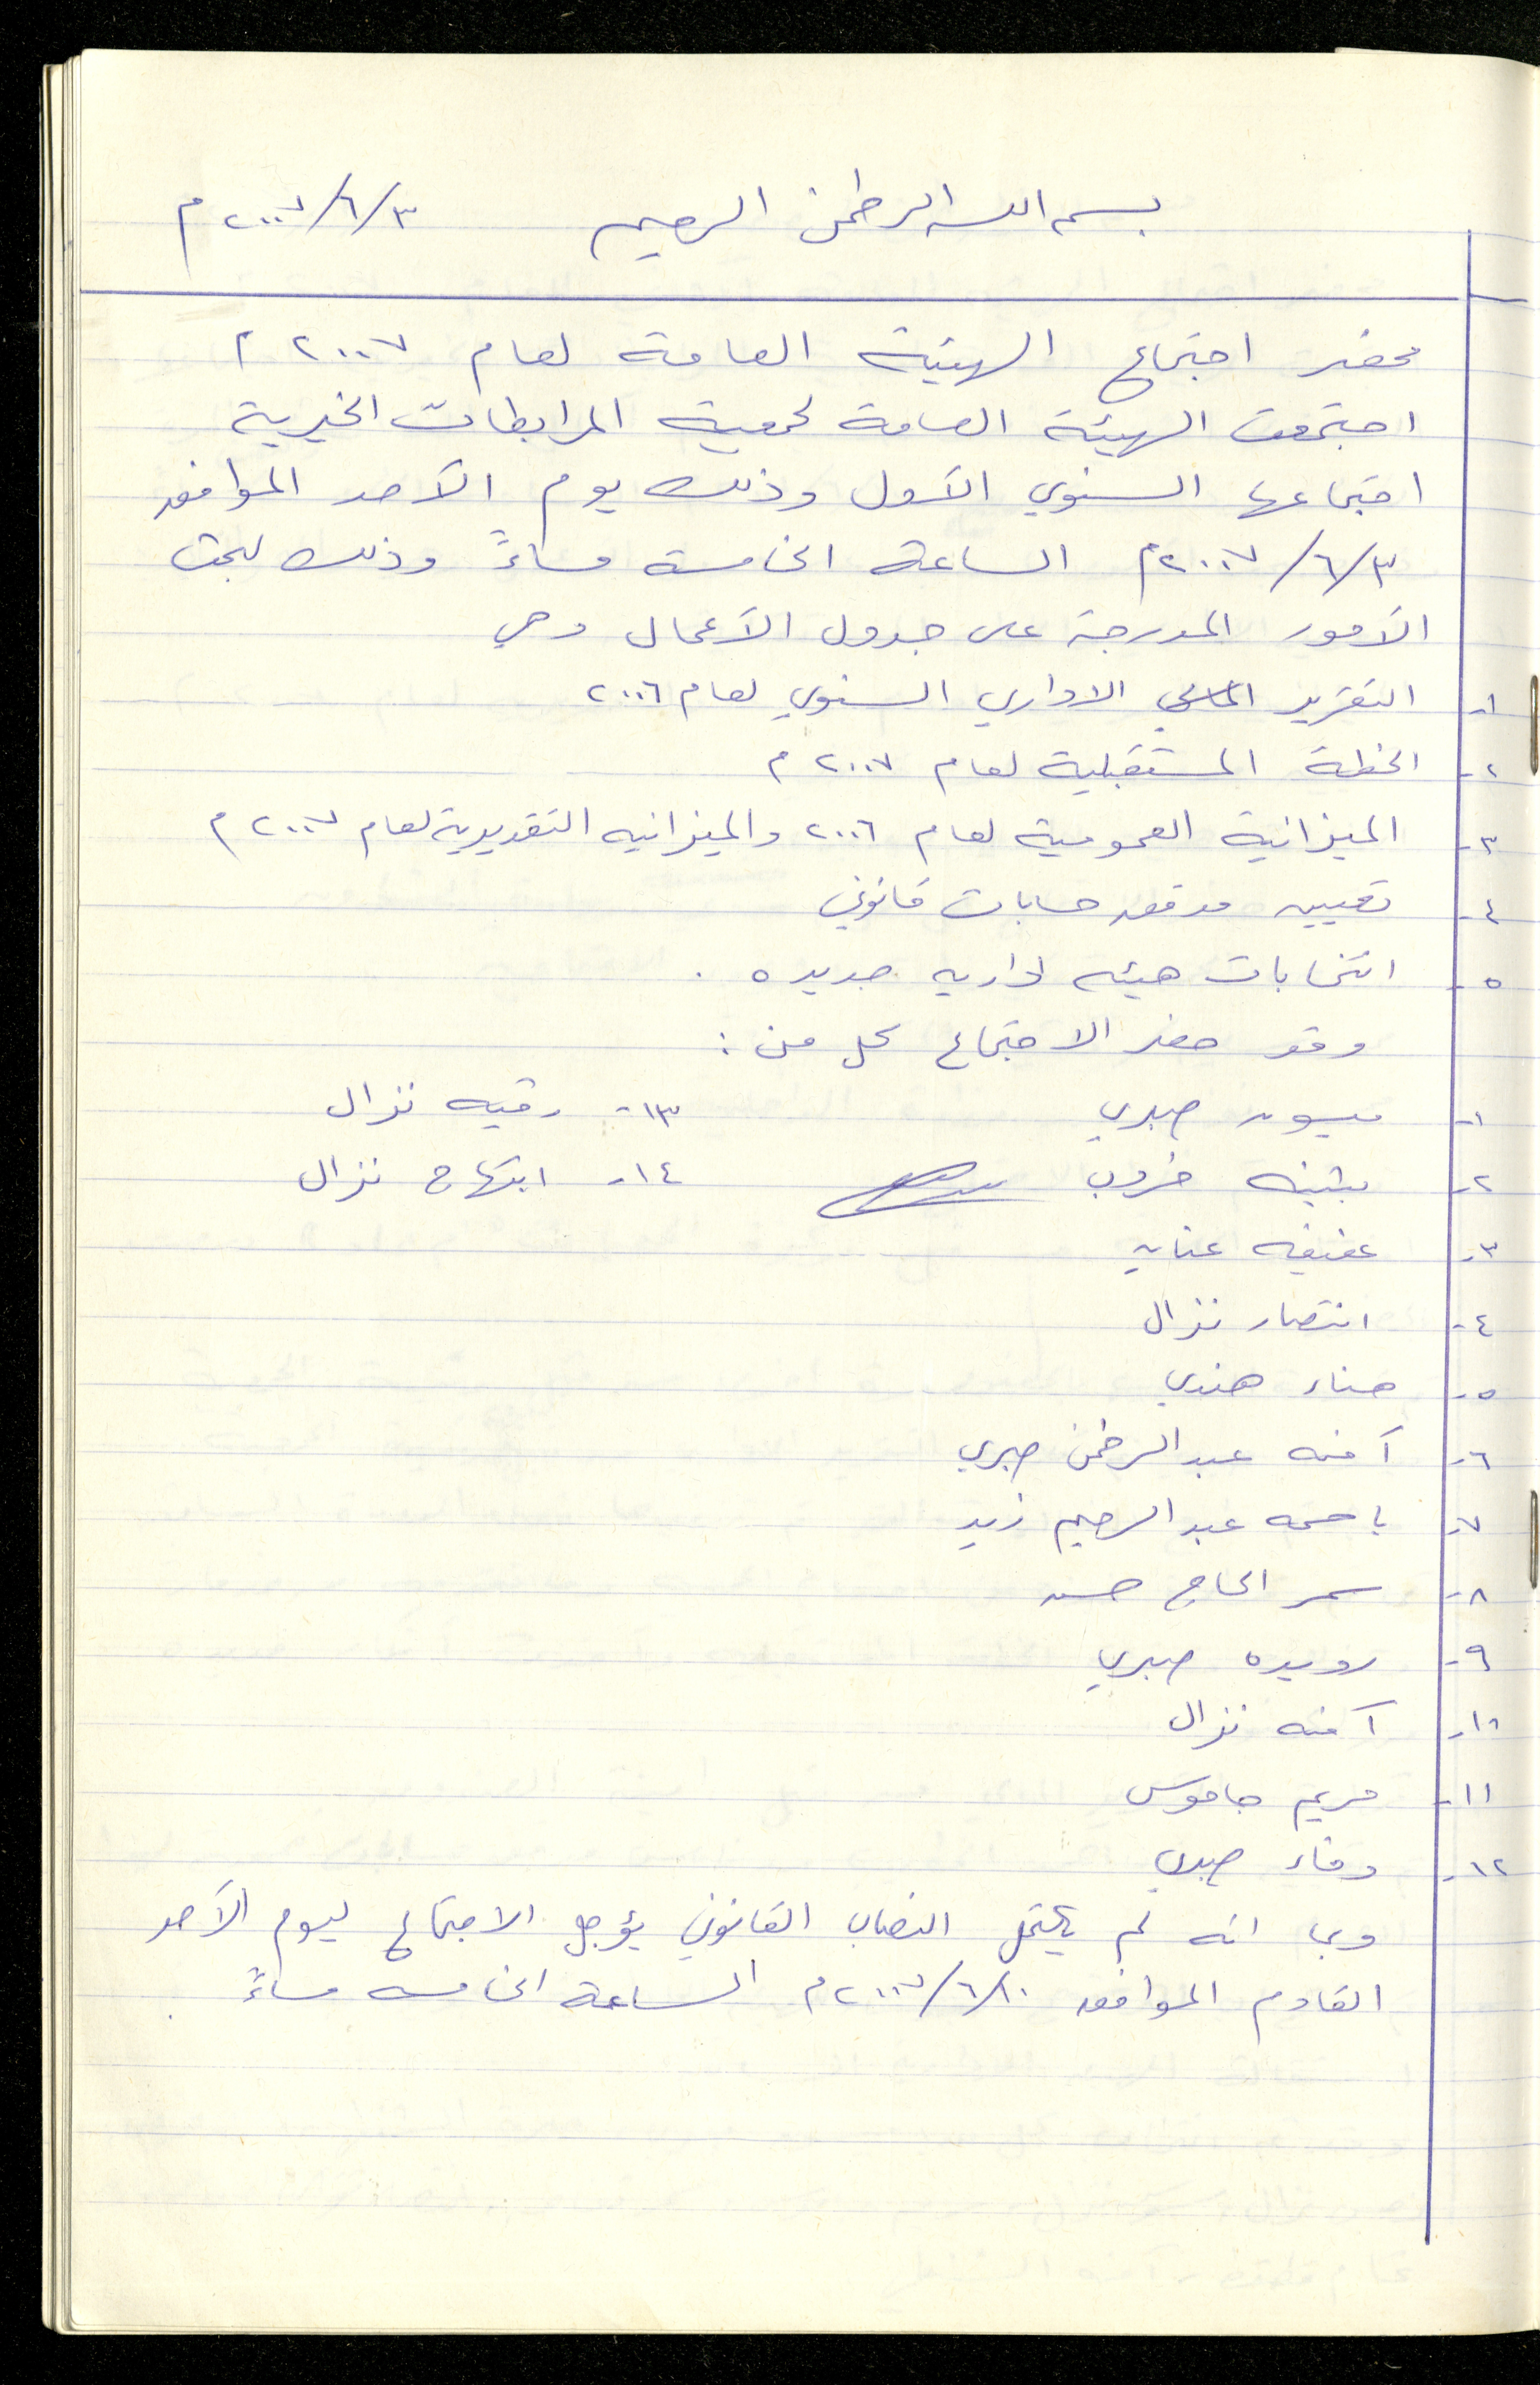 بسم الله الرحمن الرحيم ٢٠٠٧/٦/٣ م
محضر اجتماع الهيئة العامة لعام ٢٠٠٧ م
اجتمعت الهيئة العامة لجمعية المرابطات الخيرية
اجتماعها السنوي الأول وذلك يوم الأحد الموافق
٢٠٠٧/٦/٣م الساعة الخامسة مساءً وذلك لبحث
الأمور المدرجة على جدول الأعمال وهي
١- التقرير الاداري السنوي لعام ٢٠٠٦
٢- الخطة المستقبلية لعام ٢٠٠٧ م
٣- الميزانية العمومية لعام ٢٠٠٦ والميزانيه التقديرية لعام ٢٠٠٧ م
٤- تعيين مدقق حسابات قانوني
٥- انتخابات هيئه اداريه جديده .
وقد حضر الاجتماع كل من :
١- ميسون صبري ١٣- رقيه نزال
٢- بثينه خروب ١٤- ابتهاج نزال
٣- عفيفه عناية
٤- انتصار نزال
٥- هناء هندي
٦- آمنه عبد الرحمن صبري
٧- باسمه عبد الرحيم زيد
٨- سمر الحاج حسن
٩- رويده صبري
١٠- آمنه نزال
١١- مريم جاموس
١٢- وفاء صبري
وبما انه لم يكتمل النصاب القانوني يؤجل الاجتماع ليوم الأحد
القادم الموافق ٢٠٠٧/٦/١٠م الساعة الخامسه مساءً